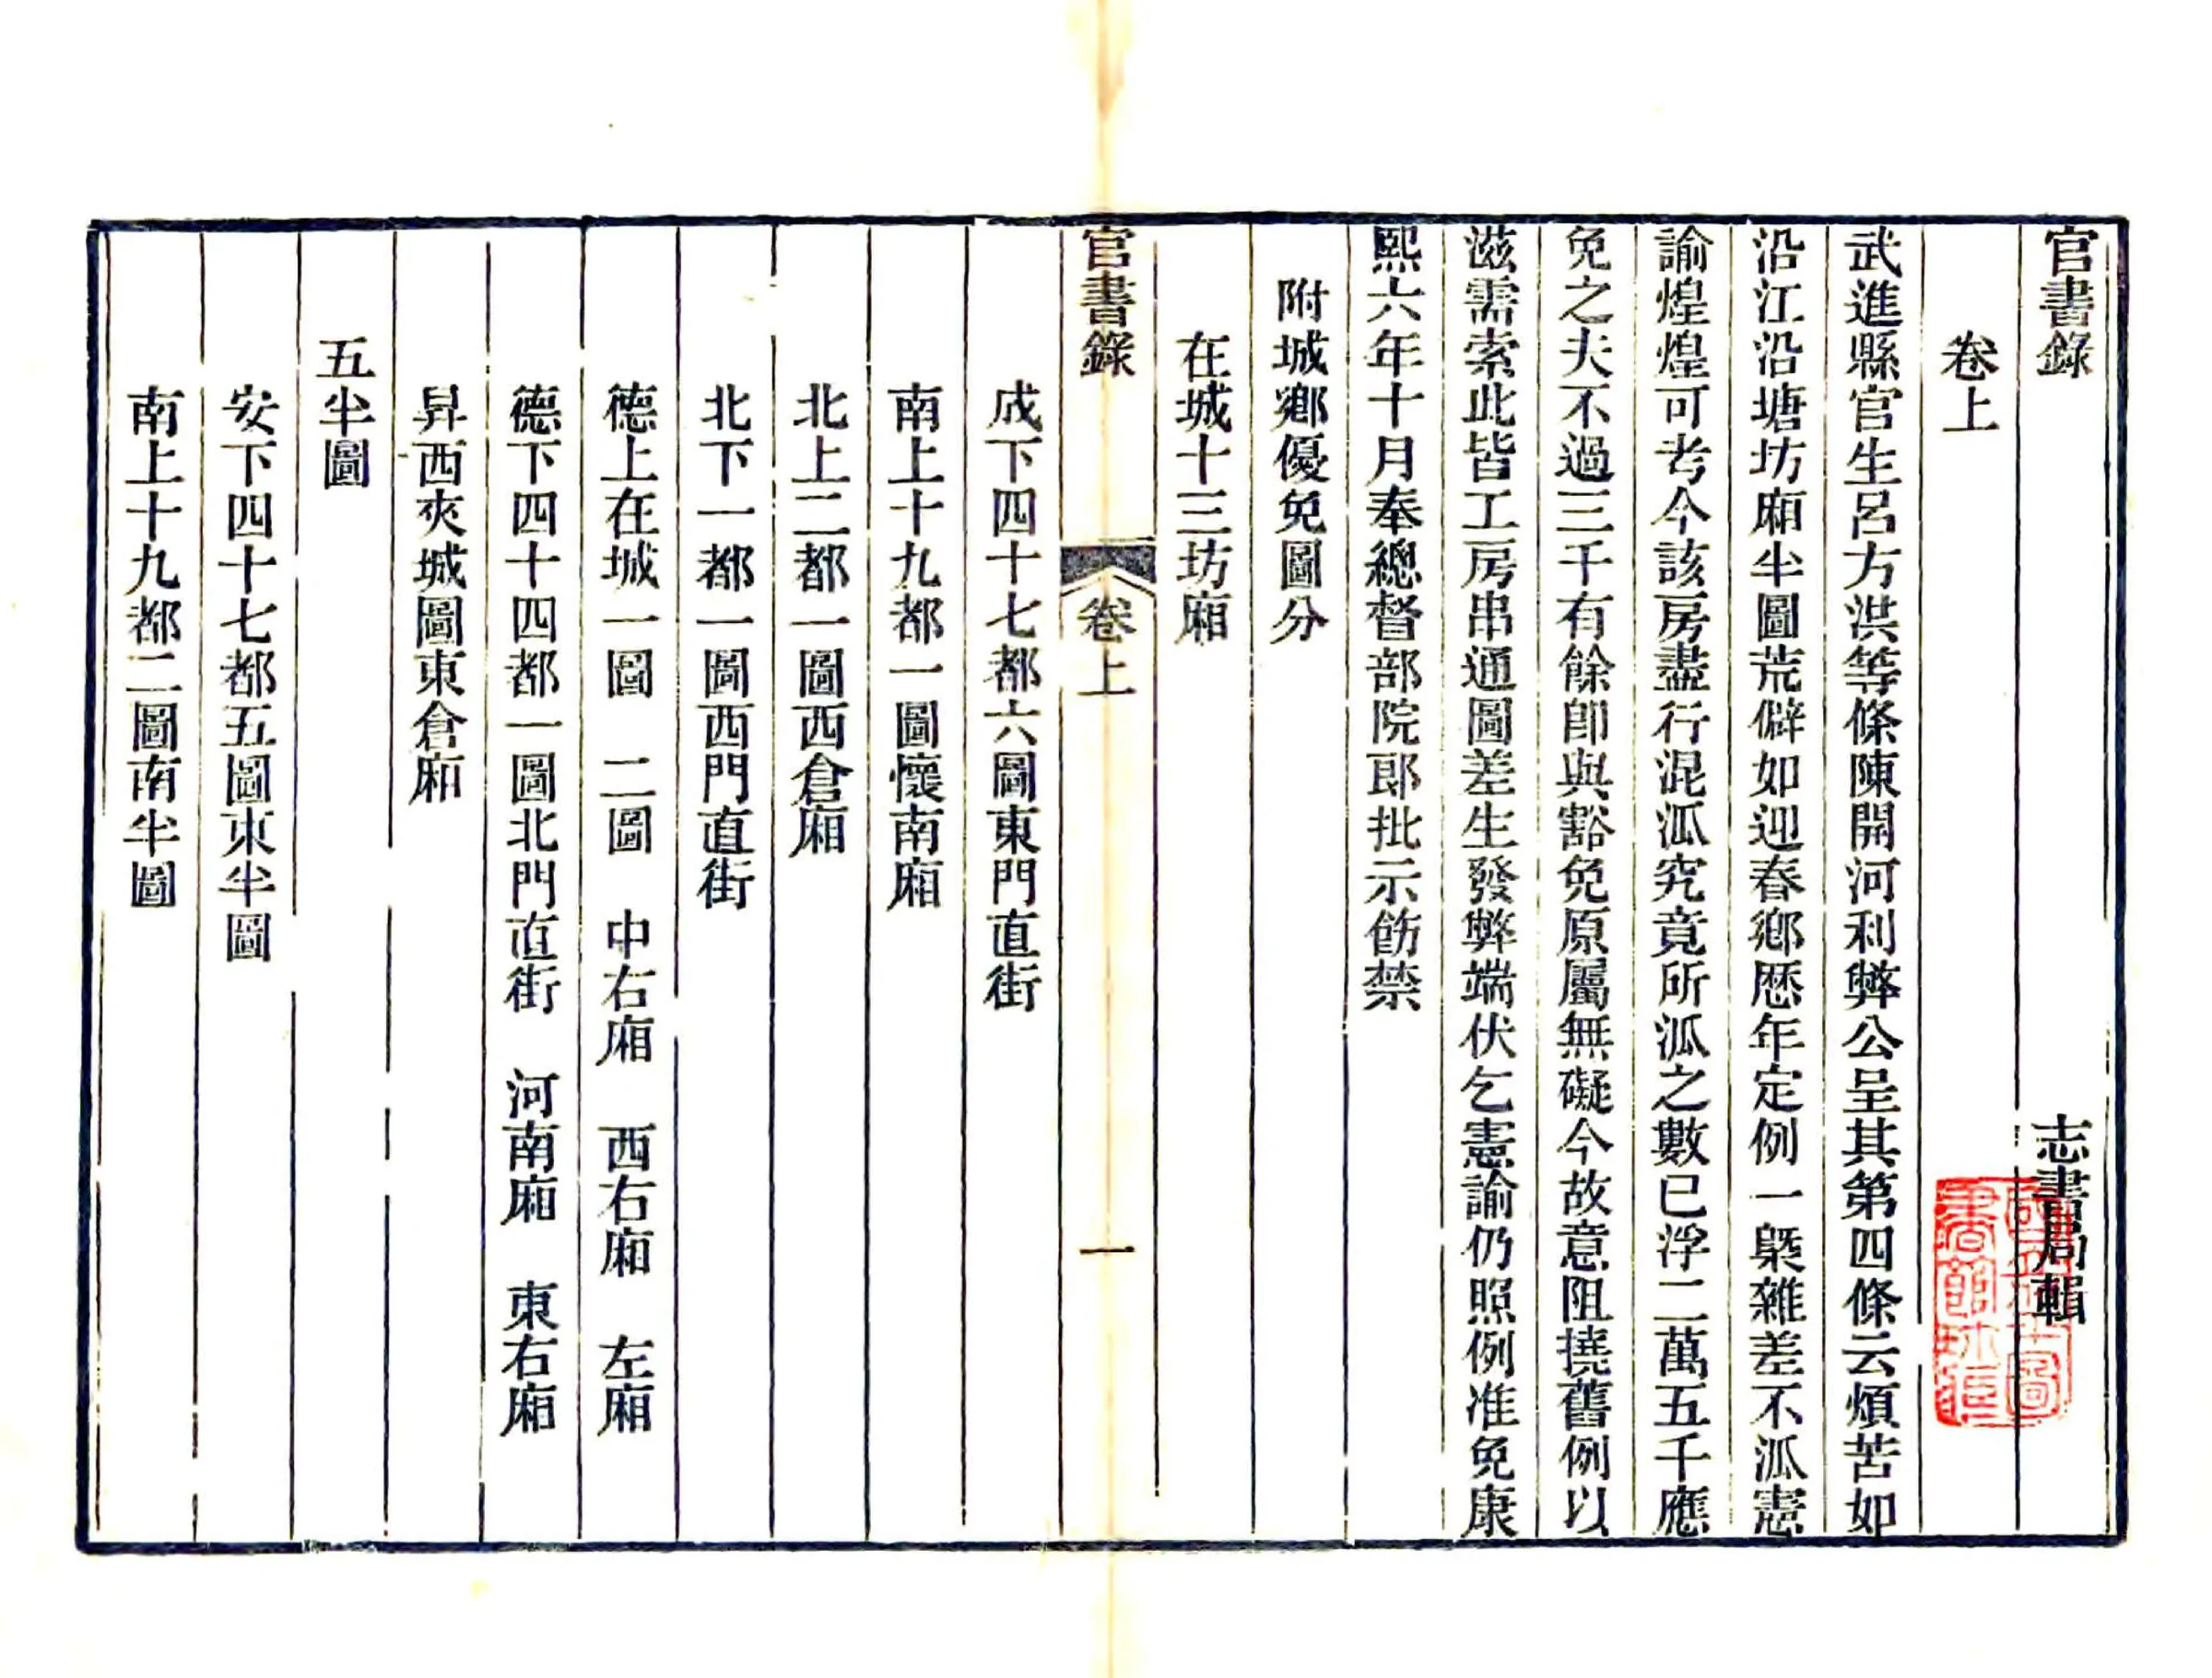 官書錄
志書局輯
卷上
武進縣官生呂方洪等條陳開河利弊公呈其第四條云煩苦如
沿江沿塘坊廂半圖荒僻如迎春鄉歷年定例一槩雜差不泒憲
諭煌煌可考今該房盡行混泒究竟所泒之數已浮二萬五千應
免之夫不過三千有餘卽與豁免原屬無礙今故意阻撓舊例以
滋需索此皆工房串通圖差生發弊端伏乞憲諭仍照例准免康
熙六年十月奉總督部院郎批示飭禁
附城鄉優免圖分
在城十三坊廂
官書錄
卷上
一
成下四十七都六圖東門直街
南上十九都一圖懷南廂
北上二都一圖西倉廂
北下一都一圖西門直街
德上在城一圖　二圖　中右廂　西右廂　左廂
德下四十四都一圖北門直街　河南廂　東右廂
昇西夾城圖東倉廂
五半圖
安下四十七都五圖東半圖
南上十九都二圖南半圖